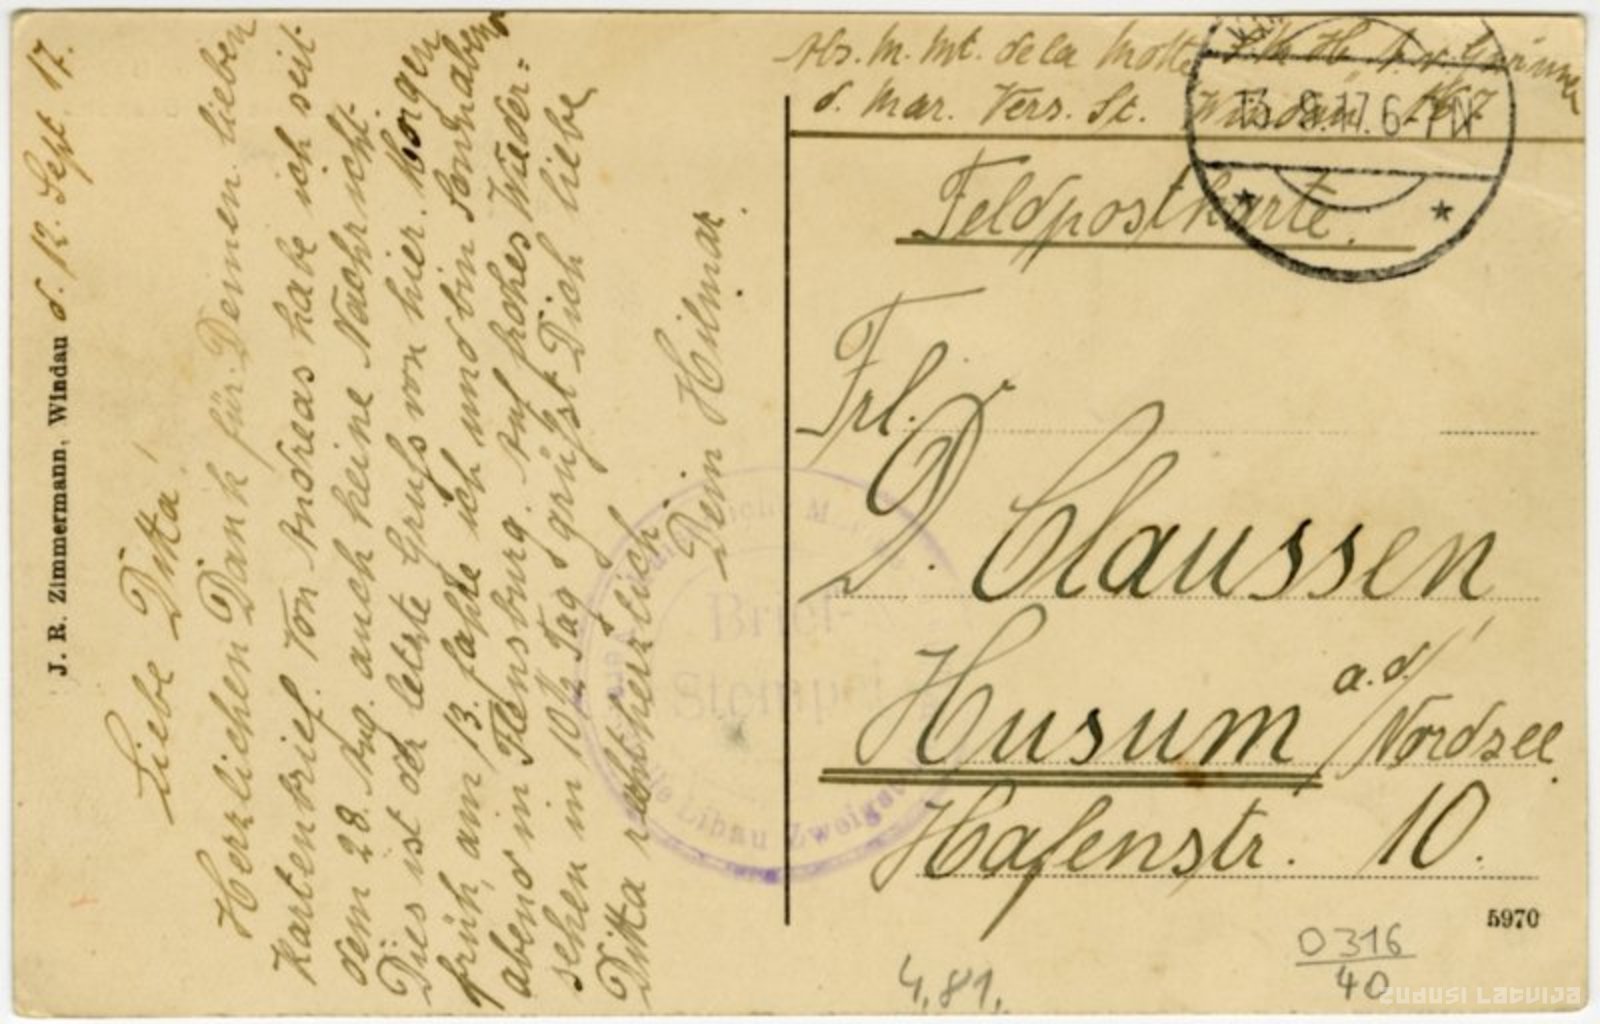 J. R. Zimmermann, Windau
d. 12. Sept. 17.
Liebe Ditta!
Herzlichen Dank für Deinen lieben
Kartenbrief. Von Andreas habe ich seit
dem 28. Aug. auch keine Nachricht.
Dies ist der letzte Gruß von hier. Morgen
früh, am 13. fahre ich und bin Sonnabend
abend in Flensburg. Auf frohes Wieder=
sehen in 10½ Tag grüßt Dich liebe
Ditta recht herzlich
Dein Hilmar.
Abs. M. Mt. de la Motte
d. Mar. Vers. St. Windau
13. 9. 17. 6-7 N
Feldpostkarte.
Frl.
D. Claussen
Husum a.d./Nordsee
Hafenstr. 10.
Brief-
Stempel
Libau Zweigst
5970
4.81.
0316
40
ZUDUSI LATVIJA